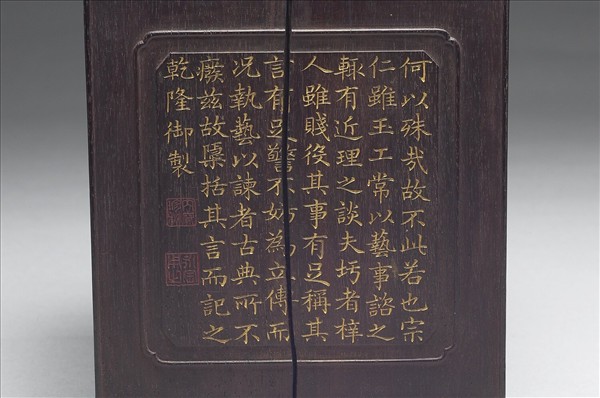 何以殊哉故不此若也宗
仁雖玉工常以藝事諮之
輒有近理之談夫圬者梓
人雖賤役其事有足稱其
言有足警不妨為立傳而
况執藝以諫者古典所不
癈茲故檃括其言而記之
乾隆御製